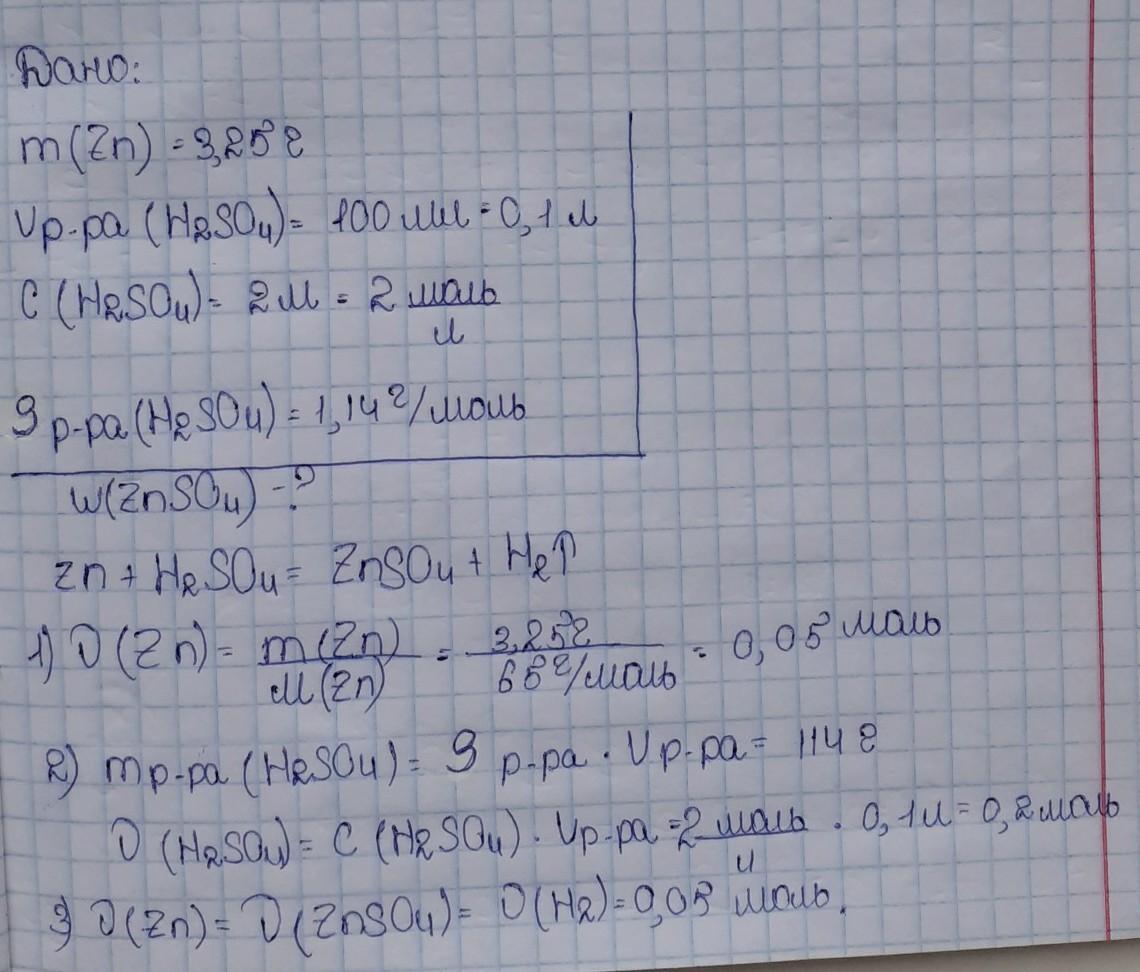 Дано:
m(Zn) = 3,25 г
Vр-ра (H2SO4) = 100 мл = 0,1 л
C (H2SO4) = 2М = 2 моль/л
ρ р-ра (H2SO4) = 1,14 г/моль
w(ZnSO4) - ?
Zn + H2SO4 = ZnSO4 + H2↑
1) ν(Zn) = m(Zn)/M(Zn) = 3,25г/65г/моль = 0,05 моль
2) mр-ра (H2SO4) = ρ р-ра · Vр-ра = 114 г
ν (H2SO4) = C (H2SO4) · Vр-ра = 2 моль/л · 0,1л = 0,2 моль
3) ν(Zn) = ν(ZnSO4) = ν(H2) = 0,05 моль.